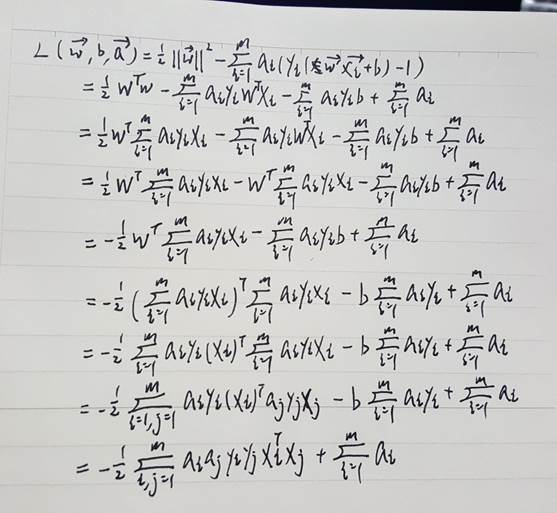 L(w⃗, b, a⃗) = ½||w⃗||² − ∑_{i=1}^{m} aᵢ(yᵢ(w⃗ x⃗ᵢ + b) − 1)
= ½ wᵀw − ∑_{i=1}^{m} aᵢyᵢwᵀxᵢ − ∑_{i=1}^{m} aᵢyᵢb + ∑_{i=1}^{m} aᵢ
= ½ wᵀ ∑_{i=1}^{m} aᵢyᵢxᵢ − ∑_{i=1}^{m} aᵢyᵢwᵀxᵢ − ∑_{i=1}^{m} aᵢyᵢb + ∑_{i=1}^{m} aᵢ
= ½ wᵀ ∑_{i=1}^{m} aᵢyᵢxᵢ − wᵀ ∑_{i=1}^{m} aᵢyᵢxᵢ − ∑_{i=1}^{m} aᵢyᵢb + ∑_{i=1}^{m} aᵢ
= −½ wᵀ ∑_{i=1}^{m} aᵢyᵢxᵢ − ∑_{i=1}^{m} aᵢyᵢb + ∑_{i=1}^{m} aᵢ
= −½ (∑_{i=1}^{m} aᵢyᵢxᵢ)ᵀ ∑_{i=1}^{m} aᵢyᵢxᵢ − b ∑_{i=1}^{m} aᵢyᵢ + ∑_{i=1}^{m} aᵢ
= −½ ∑_{i=1}^{m} aᵢyᵢ(xᵢ)ᵀ ∑_{i=1}^{m} aᵢyᵢxᵢ − b ∑_{i=1}^{m} aᵢyᵢ + ∑_{i=1}^{m} aᵢ
= −½ ∑_{i=1,j=1}^{m} aᵢyᵢ(xᵢ)ᵀaⱼyⱼxⱼ − b ∑_{i=1}^{m} aᵢyᵢ + ∑_{i=1}^{m} aᵢ
= −½ ∑_{i,j=1}^{m} aᵢaⱼyᵢyⱼxᵢᵀxⱼ + ∑_{i=1}^{m} aᵢ